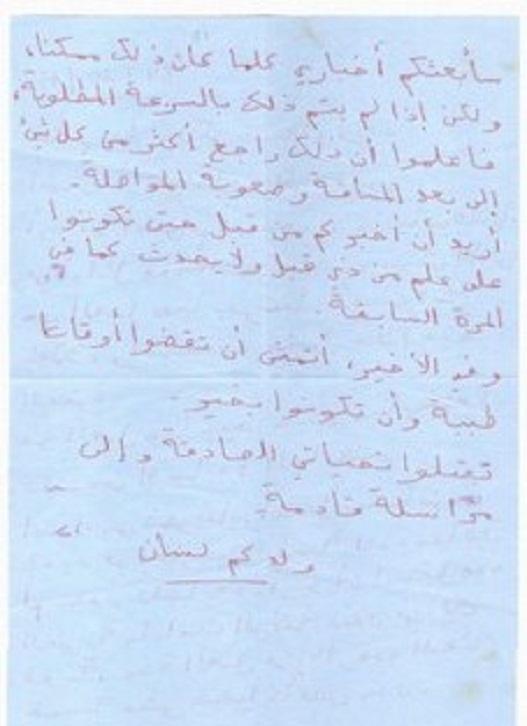 سأبعثكم أخباري كلما كان ذلك ممكنا،
ولكن إذا لم يتم ذلك بالسرعة المطلوبة،
فاعلموا أن ذلك راجع أكثر من كل شيء
إلى بعد المسافة وصعوبة المواصلة.
أريد أن أخبركم من قبل حتى تكونوا
على علم من ذي قبل ولا يحدث كما في
المرة السابقة.
وفي الأخير، أتمنى أن تقضوا أوقاتا
طيبة وأن تكونوا بخير.
تقبلوا تحياتي الصادقة وإلى
مراسلة قادمة.
ولدكم لسان